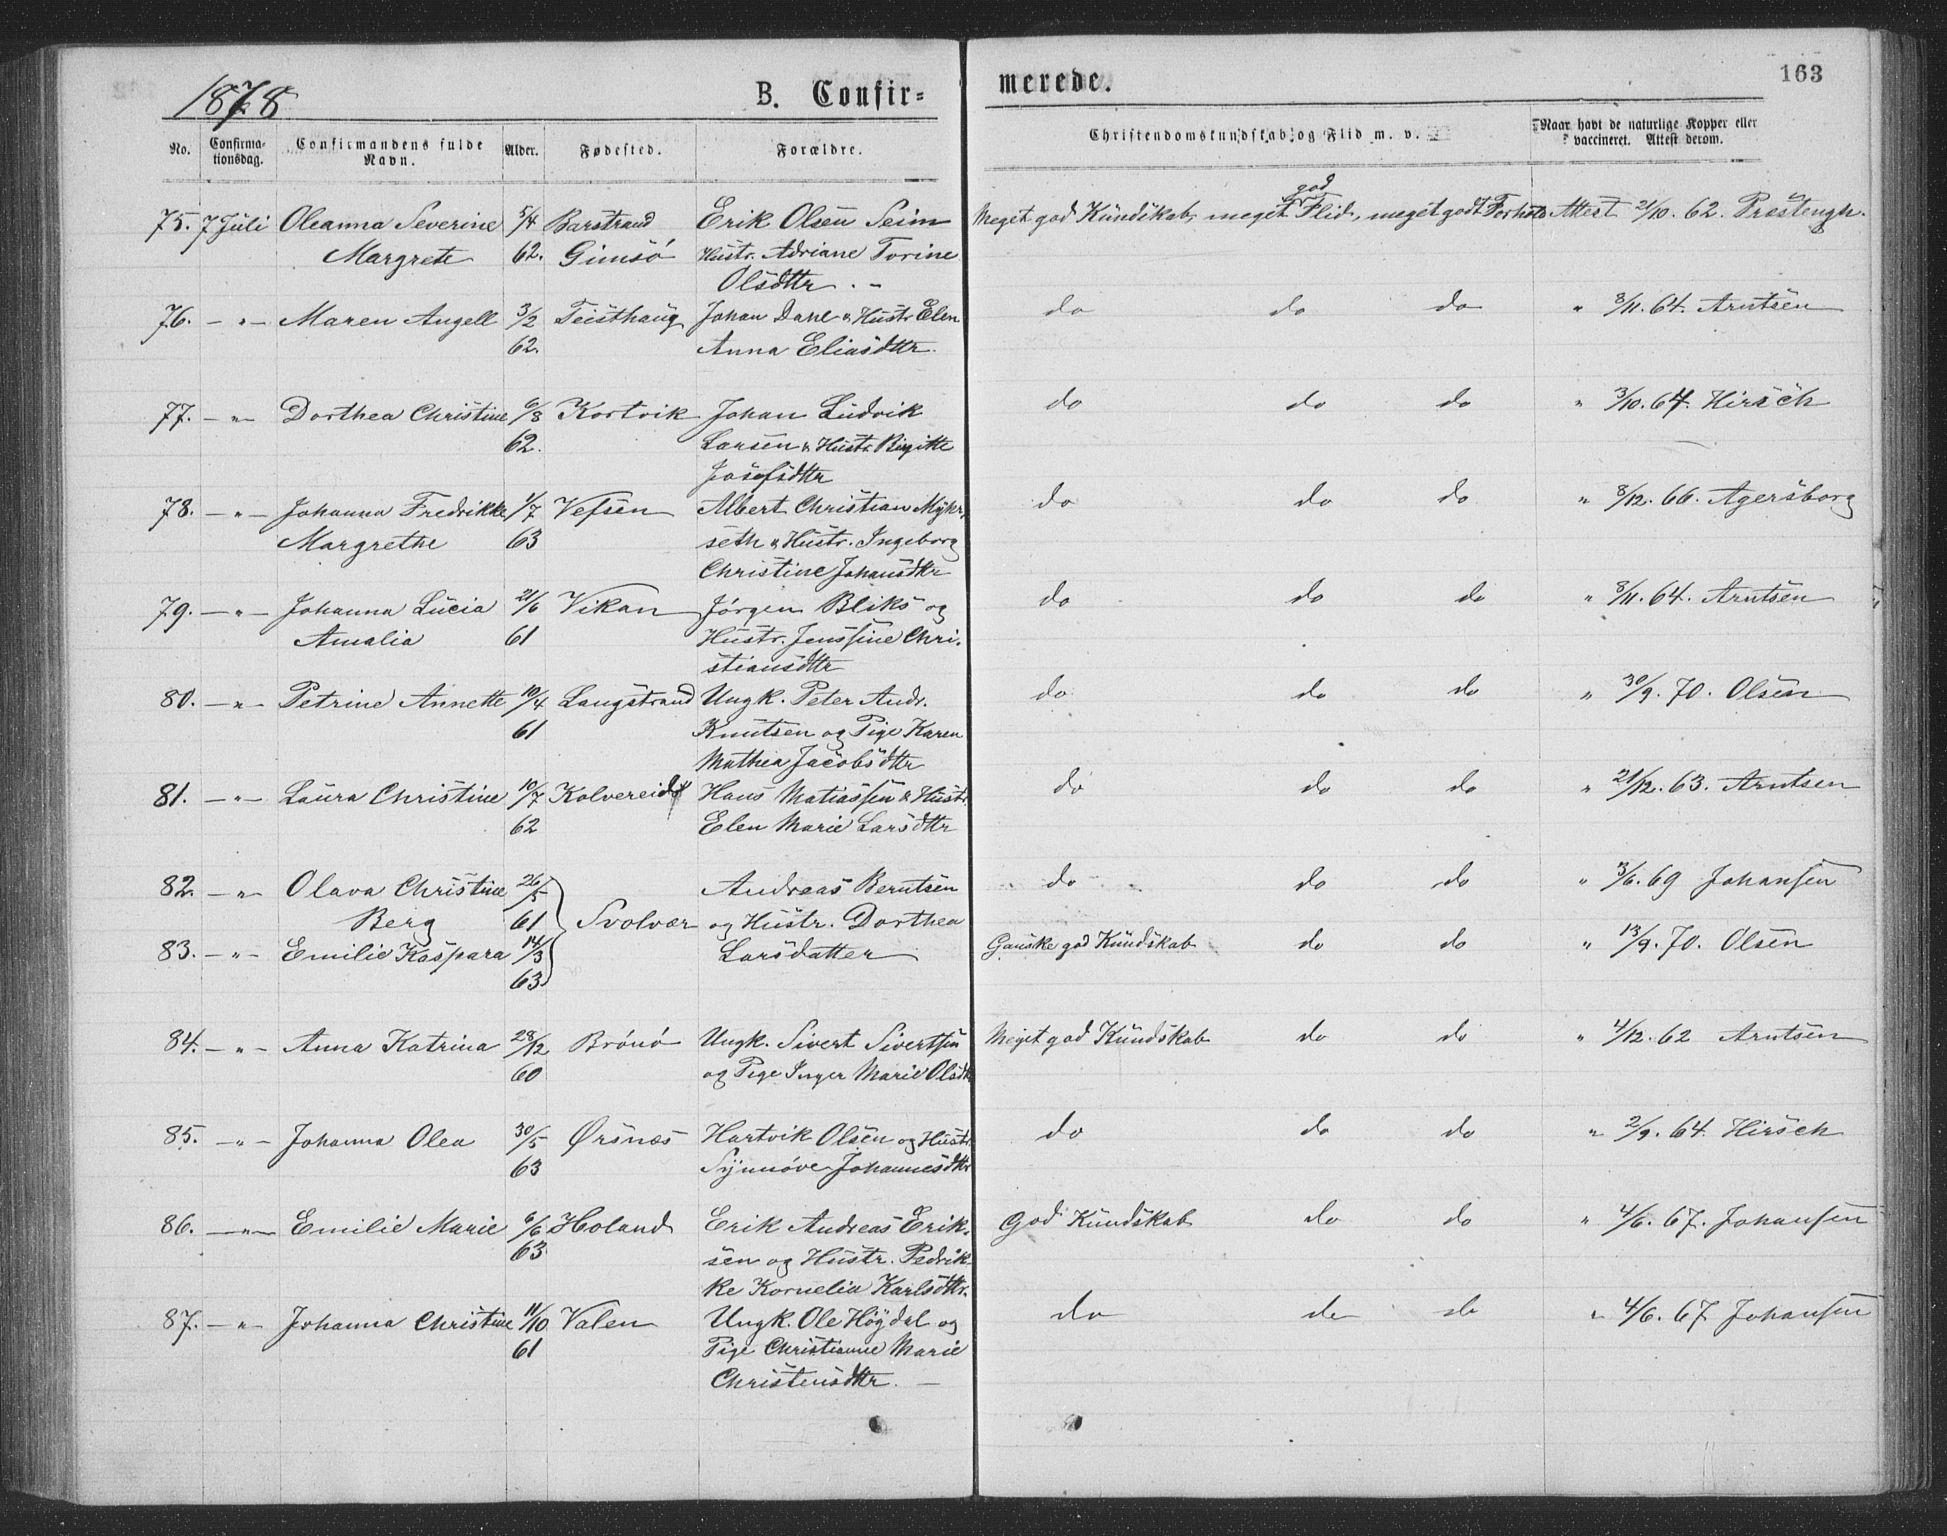 1878
B. Confir=
merede.
163
No. Confirma-tionsdag. Confirmandens fulde Navn. Alder. Fødested. Forældre. Christendomskundskab og Flid m. v. Naar havt de naturlige Kopper eller vaccineret. Attest derom.
75. 7 Juli Oleanna Severine 5/4 Barstrand Erik Olsen Seim Meget god Kundskab, meget god Flid, meget godt Forhold Attest 2/10. 62.
Margrete 62. Gimsö Hustr. Adriane Torine
Olsdttr. -
76. - " - Maren Angell 3/2 Teisthaug Johan Dahl & Hustr Elen do do do " 8/11. 64. Arntsen
62. Anna Eliasdttr.
77. - " - Dorthea Christine 6/8 Kortvik Johan Ludvik do do do " 3/10. 64. Hirsch
62. Larsen & Hustr. Birgitte
Josefsdttr
78. - " - Johanna Fredrikke 1/7 Vefsen Albert Christian Mykr- do do do " 8/12. 66. Agersborg
Margrethe 63 seth & Hustr. Ingeborg
Christine Johansdttr
79. - " - Johanna Lucia 21/6 Vikan Jørgen Bliks og do do do " 8/11. 64. Arntsen
Amalia 61 Hustr. Jenssine Chri-
stiansdttr
80. - " - Petrine Annette 10/4 Langstrand Ungk. Peter Andr. do do do " 30/9. 70. Olsen
61 Knutsen og Pige Karen
Mathea Jacobsdttr
81. - " - Laura Christine 10/7 Kolvereid Hans Matiassen & Hustr. do do do " 21/12. 63. Arntsen
62 Elen Marie Larsdttr
82. - " - Olava Christine 26/5 Andreas Berntsen do do do " 3/6. 69 Johansen
Berg 61 Svolvær og Hustr. Dorthea
83. - " - Emilie Kaspara 14/3 Larsdatter Ganske god Kundskab do do " 13/9. 70. Olsen
63
84. - " - Anna Katrina 28/12 Brönö Ungk. Sivert Sivertsen Meget god Kundskab do do " 4/12. 62 Arntsen
60 og Pige Inger Marie Olsdtr
85. - " - Johanna Olea 30/5 Ørsnæs Hartvik Olsen og Hustr. do do do " 2/9. 64. Hirsch
63 Synnöve Johannesdttr
86. - " - Emilie Marie 6/6 Holand Erik Andreas Erik- God Kundskab do do " 4/6. 67. Johansen
63 sen og Hustr. Pedrik-
ke Kornelia Karlsdttr.
87. - " - Johanna Christine 11/10 Valen Ungk. Ole Höydal og do do do " 4/6. 67. Johansen
61 Pige Christianne Marie
Christensdttr. -